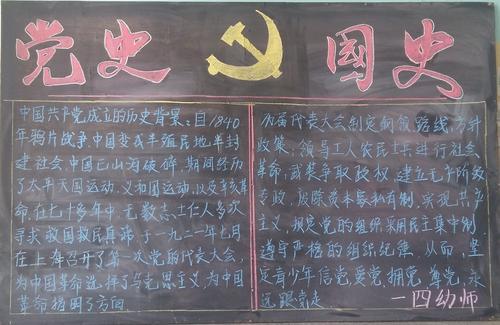 党史 国史
中国共产党成立的历史背景：自1840
年鸦片战争，中国变成半殖民地半封
建社会，中国已山河破碎，期间经历
了太平天国运动、义和团运动，以及辛亥革
命，在七十多年中，无数志士仁人多次
寻求救国救民真谛，于一九二一年七月
在上海召开了第一次党的代表大会，
为中国革命选择了马克思主义，为中国
革命指明了方向。
历届代表大会制定纲领路线、方针
政策，领导工人农民士兵进行社会
革命，武装争取政权，建立无产阶级
专政，废除资本家私有制，实现共产
主义，规定党的组织采用民主集中制，
遵守严格的组织纪集，从而，坚
定青少年信党、爱党、拥党、尊党，永
远跟党走
一四幼师